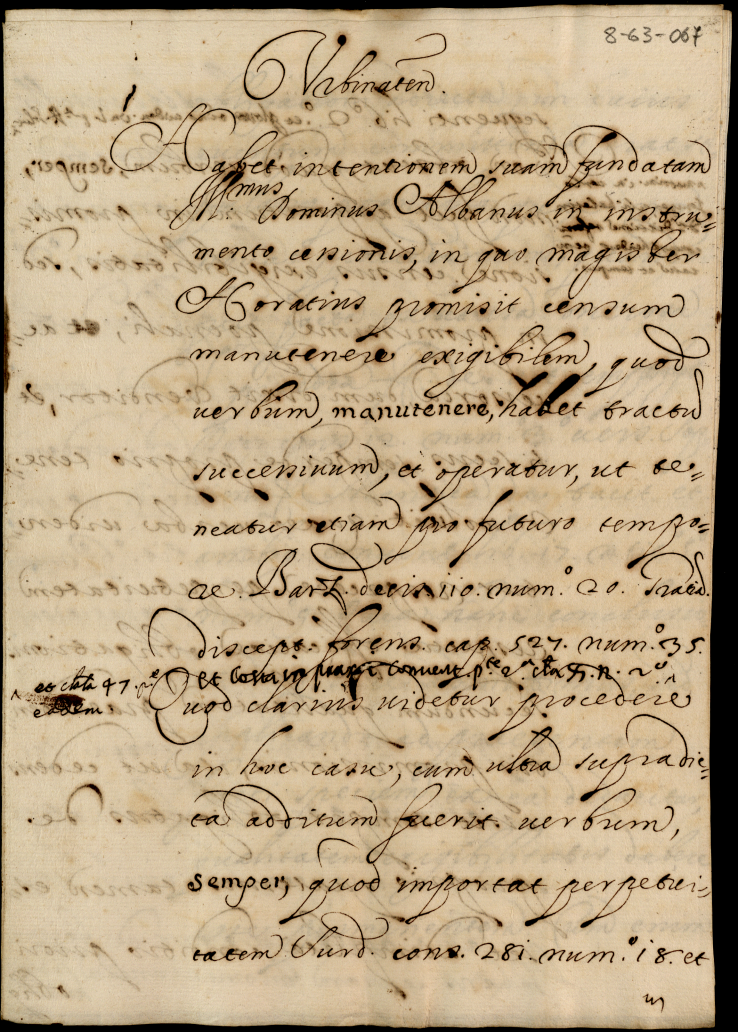 8-63-067
Urbinaten.
Habet intentionem suam fundatam
Ill.mus Dominus Albanus in instru=
mento cessionis, in quo magister
Horatius promisit censum
manutenere exigibilem, quod
verbum, manutenere, habet tractu
successivum, et operatur, ut te=
neatur etiam pro futuro tempo=
re. Barz. decis. 110. num.° 20.
discept. forens. cap. 527. num.° 35.
et in praxi
et 47.
eadem
Quod clarius videtur procedere
in hoc casu, cum ultra supradic=
ta additum fuerit verbum,
semper, quod importat perpetui=
tatem Surd. cons. 281. num.° 18. et
in